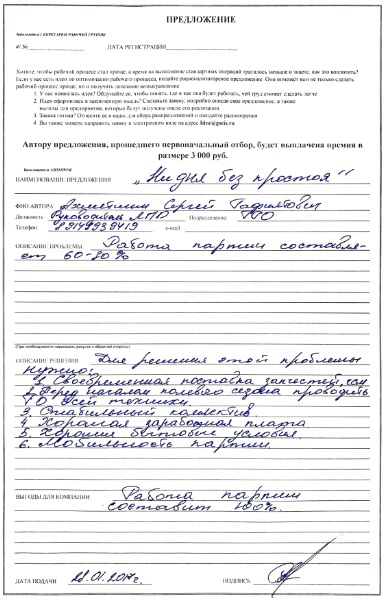 ПРЕДЛОЖЕНИЕ
Заполняется СЕКРЕТАРЕМ РАБОЧЕЙ ГРУППЫ
ДАТА РЕГИСТРАЦИИ
Хотите, чтобы рабочий процесс стал проще, а время на выполнение стандартных операций тратилось меньше и знаете, как это воплотить?
Если у вас есть идеи по оптимизации рабочего процесса, подайте рационализаторское предложение. Оно поможет вам не только сделать
рабочий процесс проще, но и получить денежное вознаграждение.
1. У вас появилась идея? Обдумайте ее, чтобы понять, где и как она будет работать, чей труд сможет сделать легче
2. Идея оформилась в законченную мысль? Составьте заявку, подробно описав свое предложение, а также
выгоды для предприятия, которые будут получены после его реализации
3. Заявка готова? Отнесите ее в ящик для сбора предложений и ожидайте рассмотрения
4. Вы также можете направить заявку в электронном виде на адрес
Автору предложения, прошедшего первоначальный отбор, будет выплачена премия в
размере 3 000 руб.
Заполняется АВТОРОМ
НАИМЕНОВАНИЕ ПРЕДЛОЖЕНИЯ „Ни дня без простоя"
ФИО АВТОРА: Сергей
Должность Руководитель Подразделение
Телефон e-mail
ОПИСАНИЕ ПРОБЛЕМЫ Работа партии составля-
ет 60-70%
(При необходимости
ОПИСАНИЕ РЕШЕНИЯ: Для решения этой проблемы
нужно:
1. Своевременная поставка запчастей,
2. Перед началом полевого сезона проводить
ТО всей техники.
3. Стабильный коллектив.
4. Хорошая заработная плата
5. Хорошие бытовые условия.
6. Мобильность партии.
ВЫГОДЫ ДЛЯ КОМПАНИИ: Работа партии
составит 100%.
ДАТА ПОДАЧИ 28.01.2017г. ПОДПИСЬ